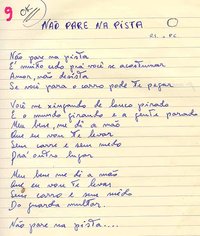 9
OK
NÃO PARE NA PISTA
RS. PC
Não pare na pista
É muito cedo prá você se acostumar
Amor, não desista
Se você para o carro pode te pegar
Você me xingando de louco pirado
E o mundo girando e a gente parado
Meu bem, me dê a mão
Que eu vou te levar
Sem carro e sem medo
Prá outro lugar
Meu bem me dê a mão
Que eu vou te levar
Sem carro e sem medo
Do guarda multar.
Não pare na pista....